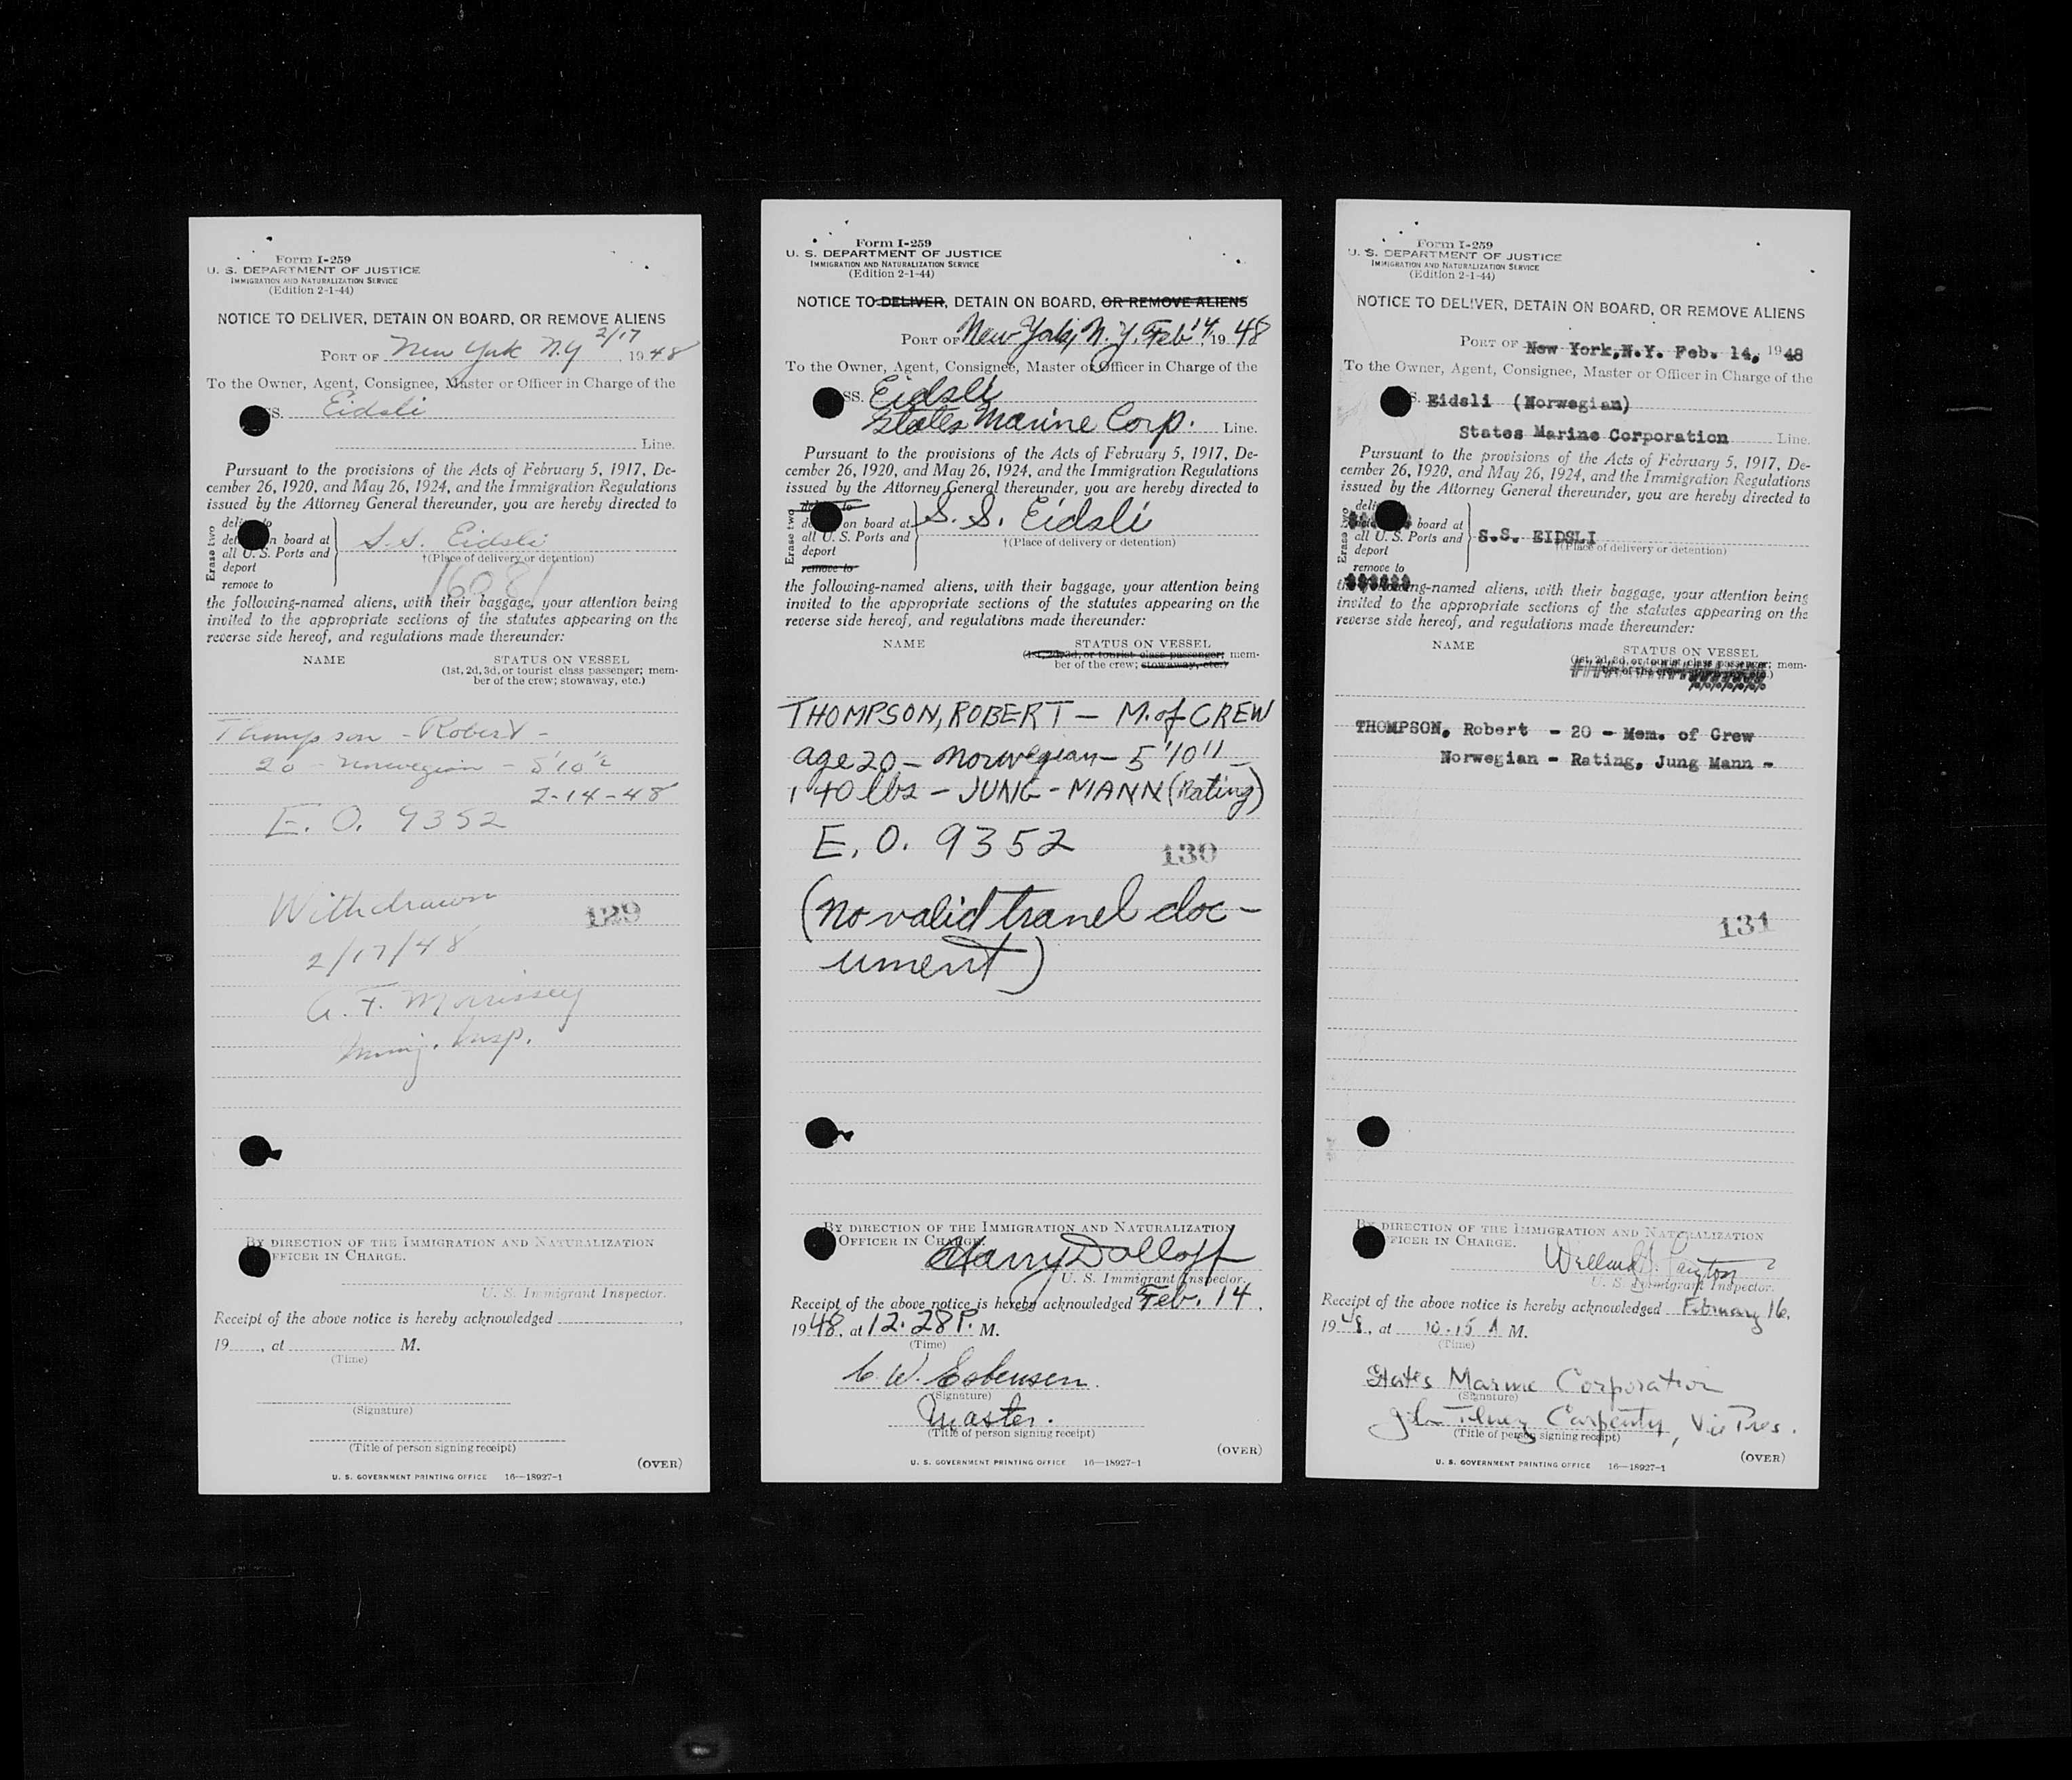 Form I-259
U. S. DEPARTMENT OF JUSTICE
IMMIGRATION AND NATURALIZATION SERVICE
(Edition 2-1-44)
NOTICE TO DELIVER, DETAIN ON BOARD, OR REMOVE ALIENS
2/17
PORT OF New York N.Y , 1948
To the Owner, Agent, Consignee, Master or Officer in Charge of the
SS. Eidsli
Line.
Pursuant to the provisions of the Acts of February 5, 1917, De-
cember 26, 1920, and May 26, 1924, and the Immigration Regulations
issued by the Attorney General thereunder, you are hereby directed to
Erase two
deliver to
detain on board at
all U. S. Ports and
deport
remove to
S.S. Eidsli
†(Place of delivery or detention)
16081
the following-named aliens, with their baggage, your attention being
invited to the appropriate sections of the statutes appearing on the
reverse side hereof, and regulations made thereunder:
NAME STATUS ON VESSEL
(1st, 2d, 3d, or tourist class passenger; mem-
ber of the crew; stowaway, etc.)
Thompson - Robert -
20 - Norwegian - 5'10"
2-14-48
E. O. 9352
Withdrawn
129
2/17/48
A. F. Morrissey
Immig. Insp.
BY DIRECTION OF THE IMMIGRATION AND NATURALIZATION
OFFICER IN CHARGE.
U. S. Immigrant Inspector.
Receipt of the above notice is hereby acknowledged ,
19 , at M.
(Time)
(Signature)
(Title of person signing receipt)
(OVER)
U. S. GOVERNMENT PRINTING OFFICE 16—18927-1
Form I-259
U. S. DEPARTMENT OF JUSTICE
IMMIGRATION AND NATURALIZATION SERVICE
(Edition 2-1-44)
NOTICE TO DELIVER, DETAIN ON BOARD, OR REMOVE ALIENS
PORT OF New York, N.Y. Feb 14, 1948
To the Owner, Agent, Consignee, Master or Officer in Charge of the
SS. Eidsli
States Marine Corp. Line.
Pursuant to the provisions of the Acts of February 5, 1917, De-
cember 26, 1920, and May 26, 1924, and the Immigration Regulations
issued by the Attorney General thereunder, you are hereby directed to
Erase two
deliver to
detain on board at
all U. S. Ports and
deport
remove to
S.S. Eidsli
†(Place of delivery or detention)
the following-named aliens, with their baggage, your attention being
invited to the appropriate sections of the statutes appearing on the
reverse side hereof, and regulations made thereunder:
NAME STATUS ON VESSEL
(1st, 2d, 3d, or tourist class passenger; mem-
ber of the crew; stowaway, etc.)
THOMPSON, ROBERT — M. of CREW
age 20 — Norwegian — 5'10" —
140 lbs — JUNG - MANN (Rating)
E. O. 9352
130
(No valid travel doc-
ument)
BY DIRECTION OF THE IMMIGRATION AND NATURALIZATION
OFFICER IN CHARGE.
Harry Dolloff
U. S. Immigrant Inspector.
Receipt of the above notice is hereby acknowledged Feb. 14,
1948, at 12.28 P. M.
(Time)
C. W. Esbensen.
(Signature)
Master.
(Title of person signing receipt)
(OVER)
U. S. GOVERNMENT PRINTING OFFICE 16—18927-1
Form I-259
U. S. DEPARTMENT OF JUSTICE
IMMIGRATION AND NATURALIZATION SERVICE
(Edition 2-1-44)
NOTICE TO DELIVER, DETAIN ON BOARD, OR REMOVE ALIENS
PORT OF New York,N.Y. Feb. 14, 1948
To the Owner, Agent, Consignee, Master or Officer in Charge of the
S. Eidsli (Norwegian)
States Marine Corporation Line.
Pursuant to the provisions of the Acts of February 5, 1917, De-
cember 26, 1920, and May 26, 1924, and the Immigration Regulations
issued by the Attorney General thereunder, you are hereby directed to
Erase two
board at
all U. S. Ports and
deport
remove to
S.S. EIDSLI
†(Place of delivery or detention)
the following-named aliens, with their baggage, your attention being
invited to the appropriate sections of the statutes appearing on the
reverse side hereof, and regulations made thereunder:
NAME STATUS ON VESSEL
(1st, 2d, 3d, or tourist class passenger; mem-
ber of the crew; etc.)
THOMPSON, Robert - 20 - Mem. of Crew
Norwegian - Rating, Jung Mann -
131
BY DIRECTION OF THE IMMIGRATION AND NATURALIZATION
OFFICER IN CHARGE.
U. S. Immigrant Inspector.
Receipt of the above notice is hereby acknowledged February 16,
1948, at 10.15 A M.
(Time)
States Marine Corporation
(Signature)
Carpenty, Vice Pres.
(Title of person signing receipt)
(OVER)
U. S. GOVERNMENT PRINTING OFFICE 16—18927-1